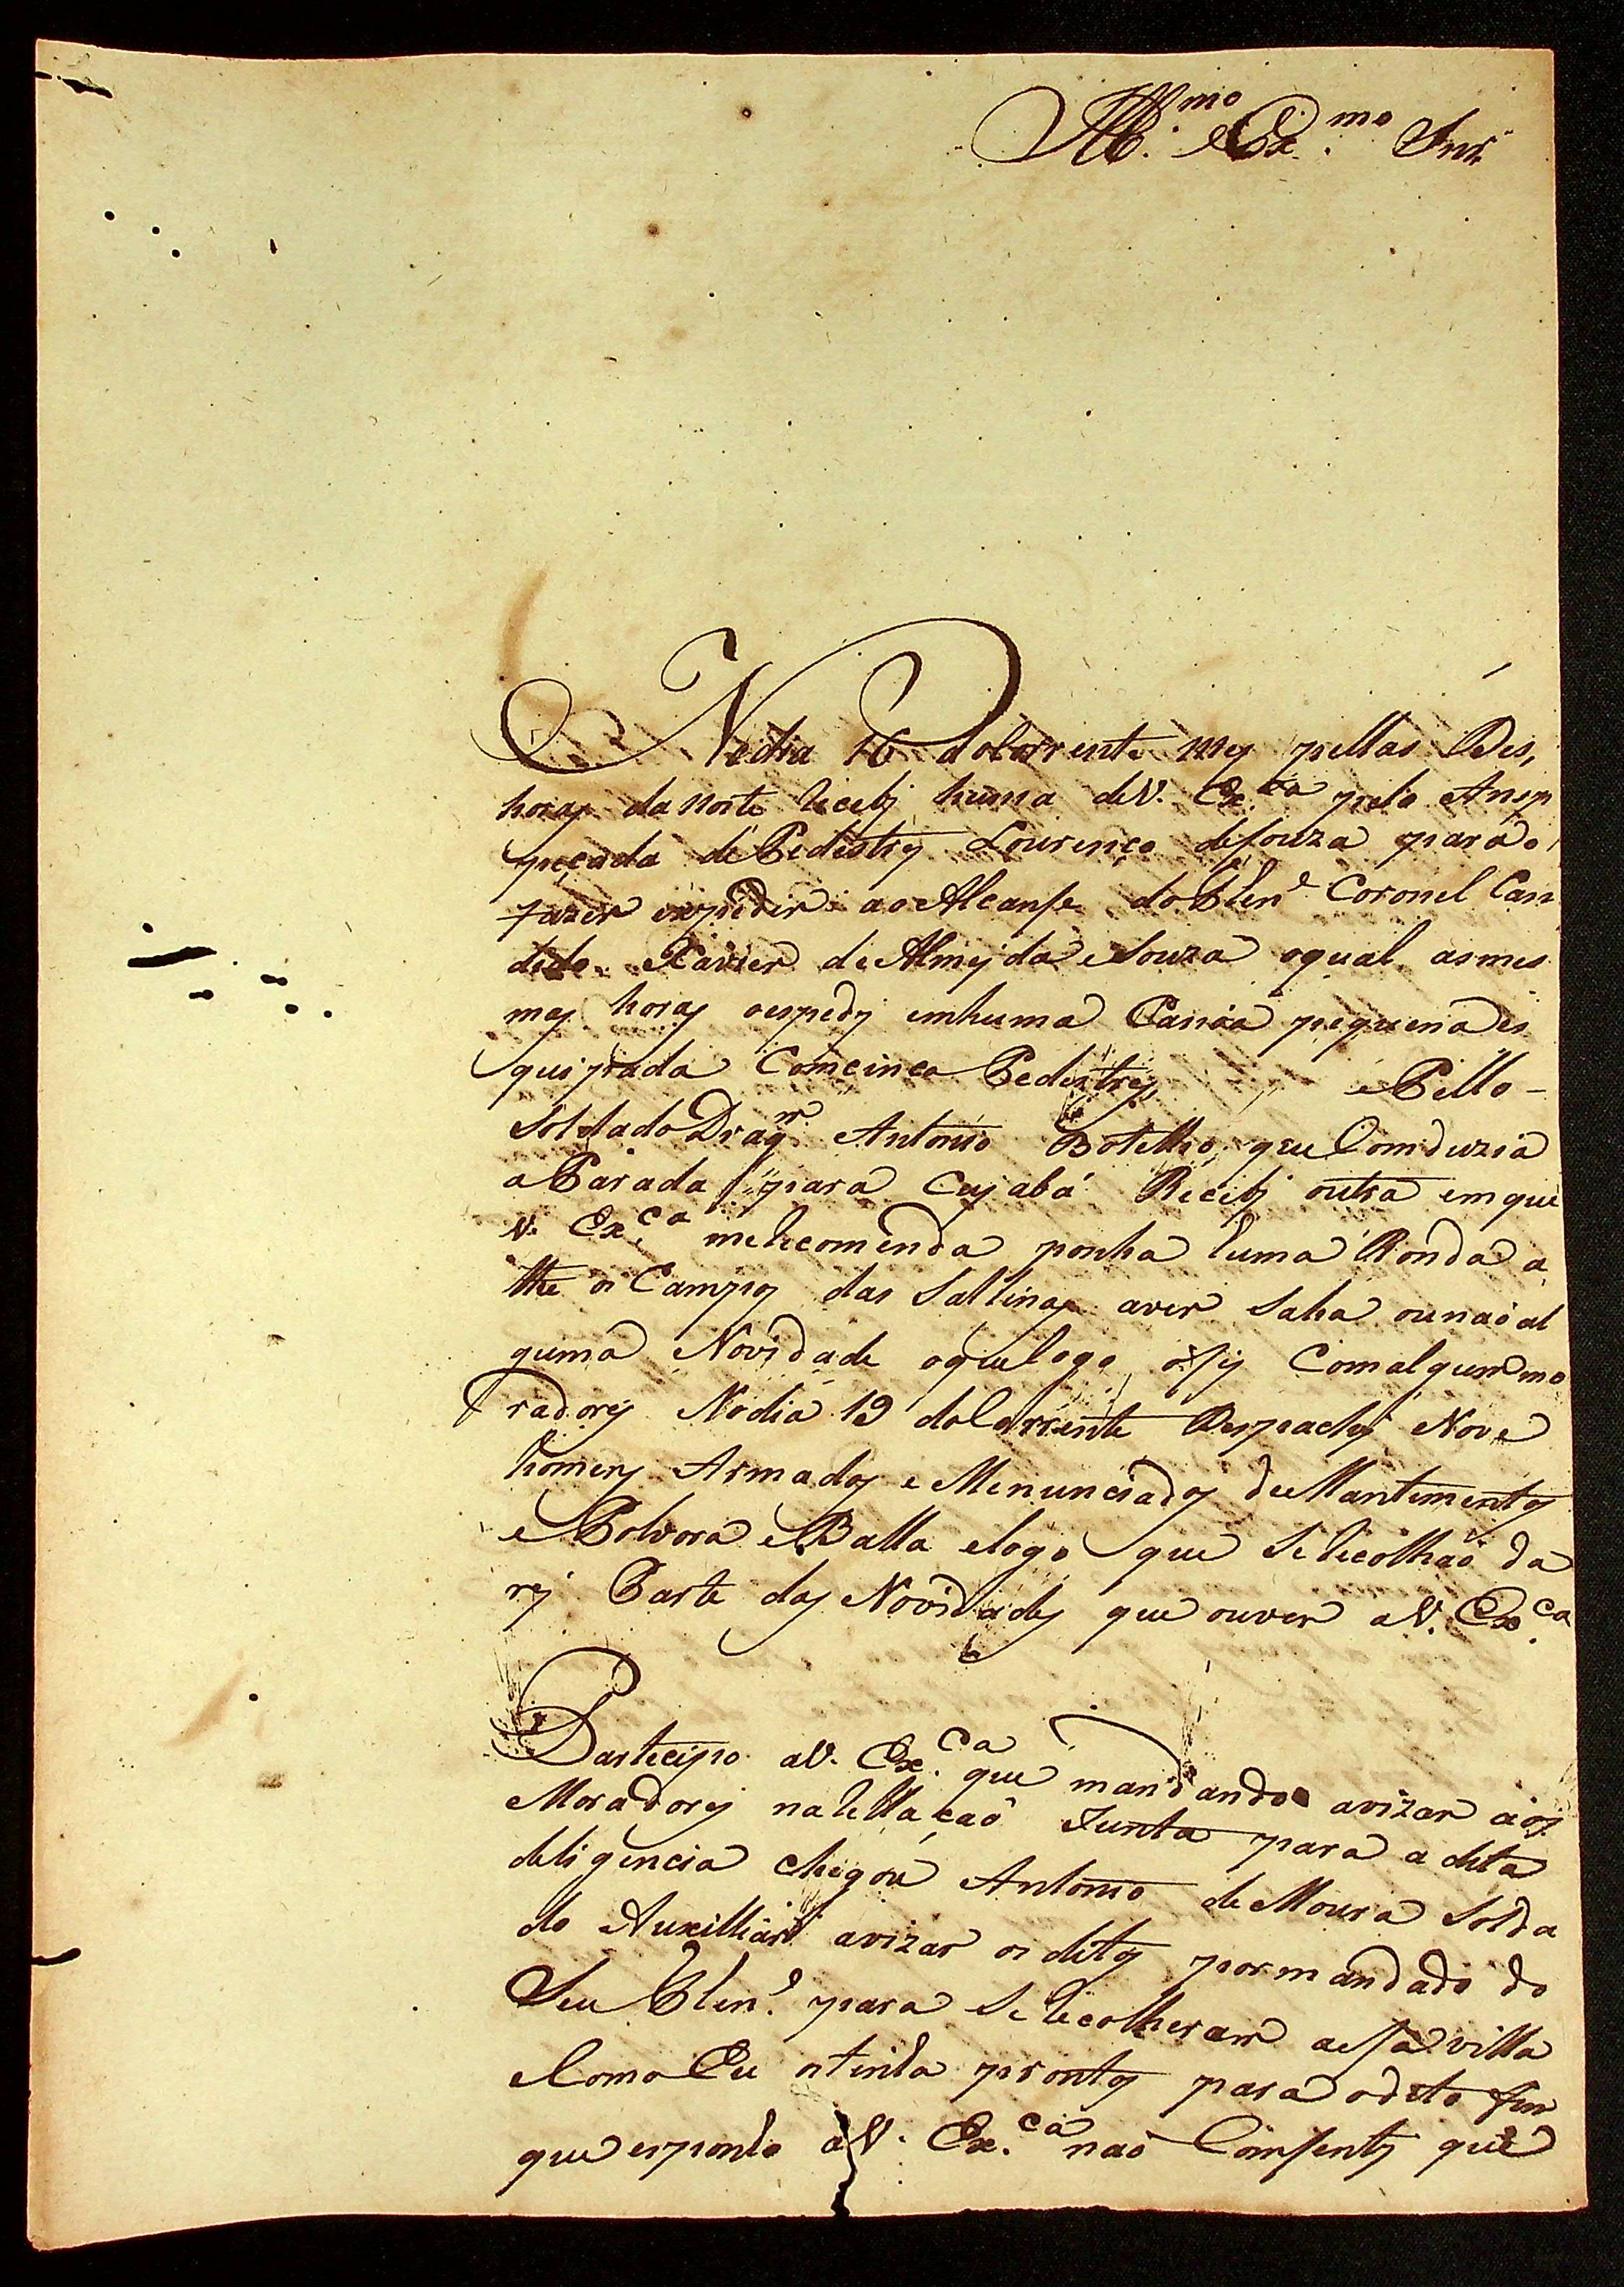 Ill.mo e Ex.mo Snr
No dia 16 do Corrente mes pellas Des,
horas da noite Recebj huma de V. Ex.cia pelo Ansp
peçada de Pedestres Lourenço de Souza para o
fazer expedir ao Alcanse do Then.e Coronel Can
dido Xavier de Almejda e Souza o qual as mes
mas horas oespedj em huma Canoa pequena es
quipada Com cinco Pedestres, e Pello -
Soldado Drag.m Antonio Botelho, que Comduzia
a Parada para Cuyabá Recebj outra em que
V. Ex.ca me Recomenda ponha huma Ronda a
the os Campos das Sallinas a ver Se ha ou naõ al
guma Novidade o que logo o fis Com alguns mo
radores No dia 19 do Corrente Despachej Nove
homens Armados e Menunciados de Mantimentos
e Polvora e Balla e logo que Se Recolhaõ da
rej Parte das Novidades que ouver a V. Ex.ca
Partecipo a V. Ex.ca que mandando avizar aos
Moradores na Rellaçaõ Junta para a dita
deligencia chegou Antonio de Moura Solda
do Auxilliar avizar os ditos por mandado do
Seu Then.e para Se Recolheram a essa villa
e Como Eu os tinha prontos para o dito fim
que esponho a V. Ex.ca naõ Comsentj que